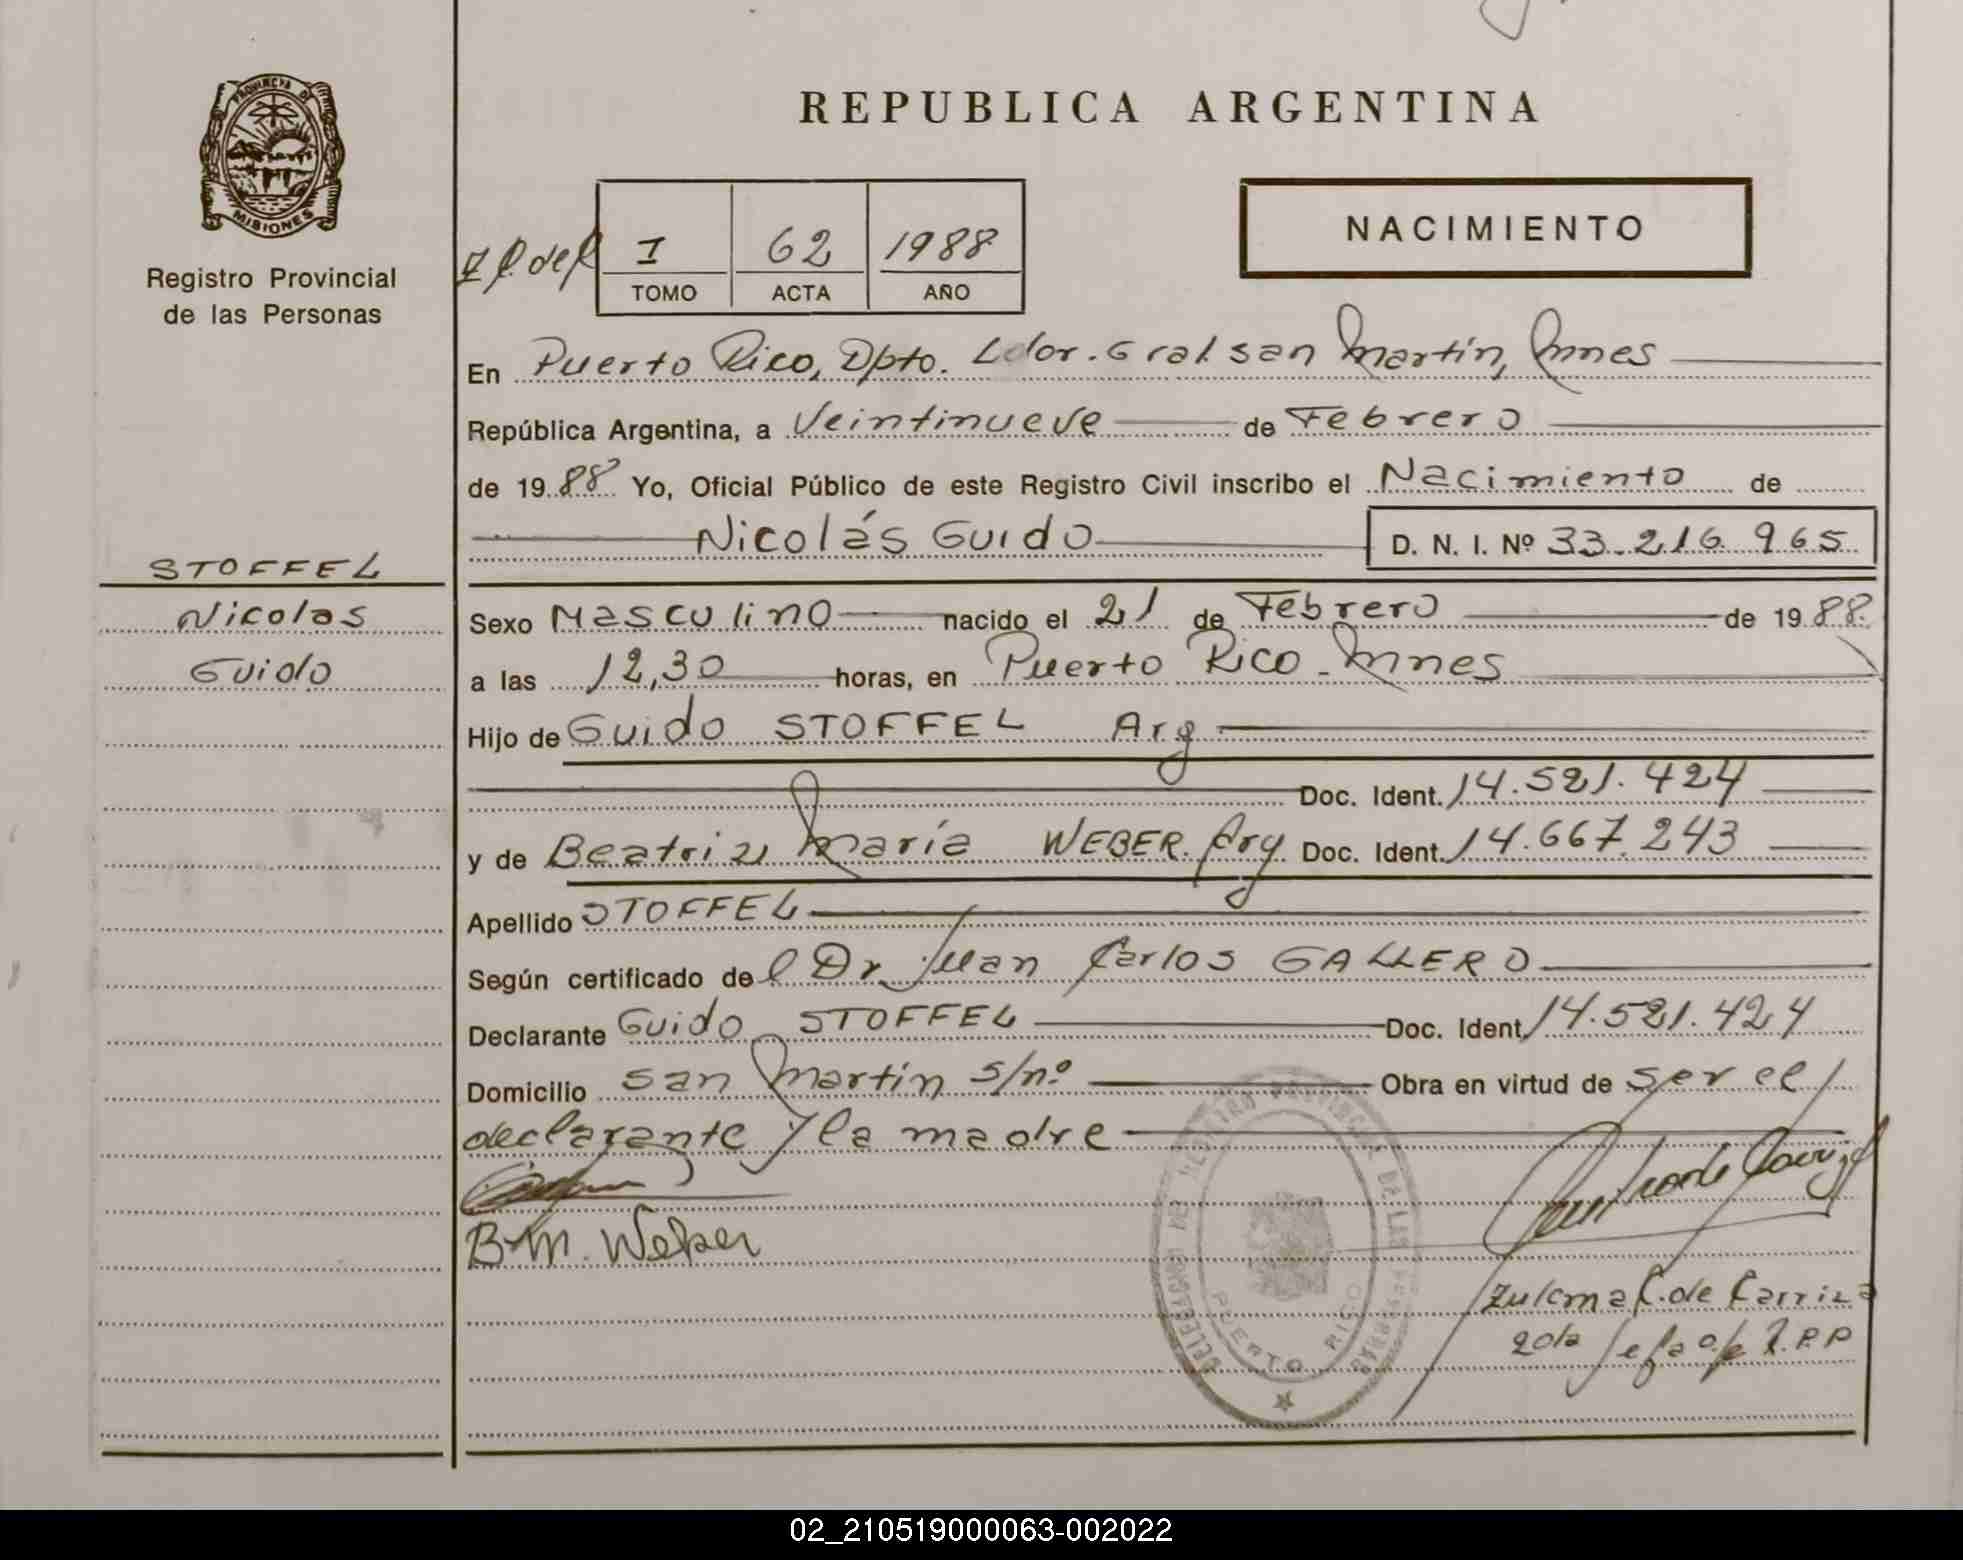 REPUBLICA ARGENTINA
PROVINCIA DE
MISIONES
Registro Provincial
de las Personas
I 62 1988
TOMO ACTA AÑO
NACIMIENTO
En Puerto Rico, Dpto. Ldor. Gral. San Martín, Mnes
República Argentina, a Veintinueve de Febrero
de 1988 Yo, Oficial Público de este Registro Civil inscribo el Nacimiento de
Nicolás Guido D. N. I. Nº 33.216.965
STOFFEL
Nicolas
Guido
Sexo Masculino nacido el 21 de Febrero de 1988.
a las 12,30 horas, en Puerto Rico - Mnes
Hijo de Guido STOFFEL Arg
Doc. Ident. 14.521.424
y de Beatriz María WEBER. Arg Doc. Ident. 14.667.243
Apellido STOFFEL
Según certificado del Dr Juan Carlos GALLERO
Declarante Guido STOFFEL Doc. Ident 14.521.424
Domicilio San Martín s/nº Obra en virtud de ser el
declarante y la madre
B. M. Weber
DELEGACION DEL REGISTRO PROVINCIAL DE LAS PERSONAS
PUERTO RICO
Zulema C. de Carriza
2da Jefa R.P.P
02_210519000063-002022